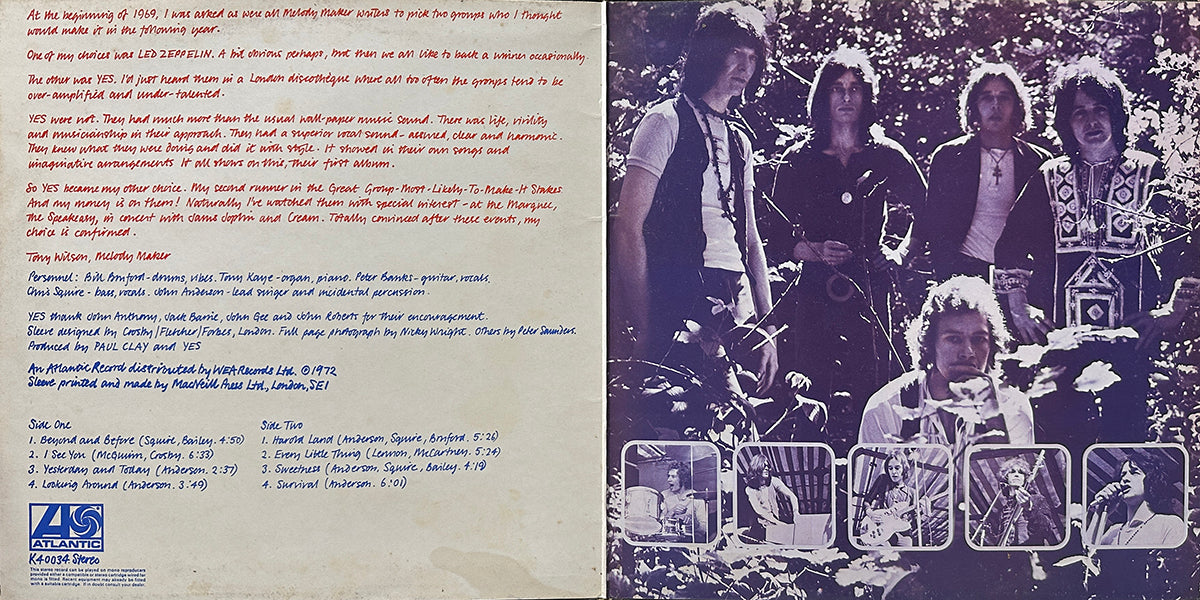 At the beginning of 1969, I was asked as were all Melody Maker writers to pick two groups who I thought
would make it in the following year.
One of my choices was LED ZEPPELIN. A bit obvious perhaps, but then we all like to back a winner occasionally.
The other was YES. I'd just heard them in a London discothèque where all too often the groups tend to be
over-amplified and under-talented.
YES were not. They had much more than the usual wall-paper music sound. There was life, virility
and musicianship in their approach. They had a superior vocal sound - assured, clear and harmonic.
They knew what they were doing and did it with style. It showed in their own songs and
imaginative arrangements It all shows on this, their first album.
So YES became my other choice. My second runner in the Great Group-Most-Likely-To-Make-It Stakes.
And my money is on them! Naturally I've watched them with special interest - at the Marquee,
the Speakeasy, in concert with Janis Joplin and Cream. Totally convinced after these events, my
choice is confirmed.
Tony Wilson, Melody Maker
Personnel: Bill Bruford - drums, vibes. Tony Kaye - organ, piano. Peter Banks - guitar, vocals.
Chris Squire - bass, vocals. John Anderson - lead singer and incidental percussion.
YES thank John Anthony, Jack Barrie, John Gee and John Roberts for their encouragement.
Sleeve designed by Crosby/Fletcher/Forbes, London. Full page photograph by Nicky Wright. Others by Peter Saunders.
Produced by PAUL CLAY and YES
An Atlantic Record distributed by WEA Records Ltd. ℗1972
Sleeve printed and made by MacNeill Press Ltd., London, SE1
Side One
1. Beyond and Before (Squire, Bailey. 4:50)
2. I See You (McGuinn, Crosby. 6:33)
3. Yesterday and Today (Anderson. 2:37)
4. Looking Around (Anderson. 3:49)
Side Two
1. Harold Land (Anderson, Squire, Bruford. 5:26)
2. Every Little Thing (Lennon, McCartney. 5:24)
3. Sweetness (Anderson, Squire, Bailey. 4:19)
4. Survival (Anderson. 6:01)
ATLANTIC
K40034 Stereo
This stereo record can be played on mono reproducers
provided either a compatible or stereo cartridge wired for
mono is fitted. Recent equipment may already be fitted
with a suitable cartridge. If in doubt consult your dealer.